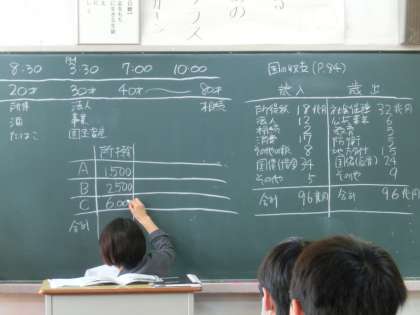 8:30 3:30 7:00 10:00
20才 30才 40才 〜 80才
所得 法人 相続
酒 事業
たばこ 固定資産
所得
A 1500
B 2500
C 600
合計
国の収支 (P.84)
歳入 歳出
所得税 18兆円 社会保障 32兆円
法人 12 公共事業 6
相続 2 教育 5
消費 17 防衛 5
その他の税 8 地方交付 15
国債(借金) 34 国債(返済) 24
その他 5 その他 9
合計 96兆円 合計 96兆円